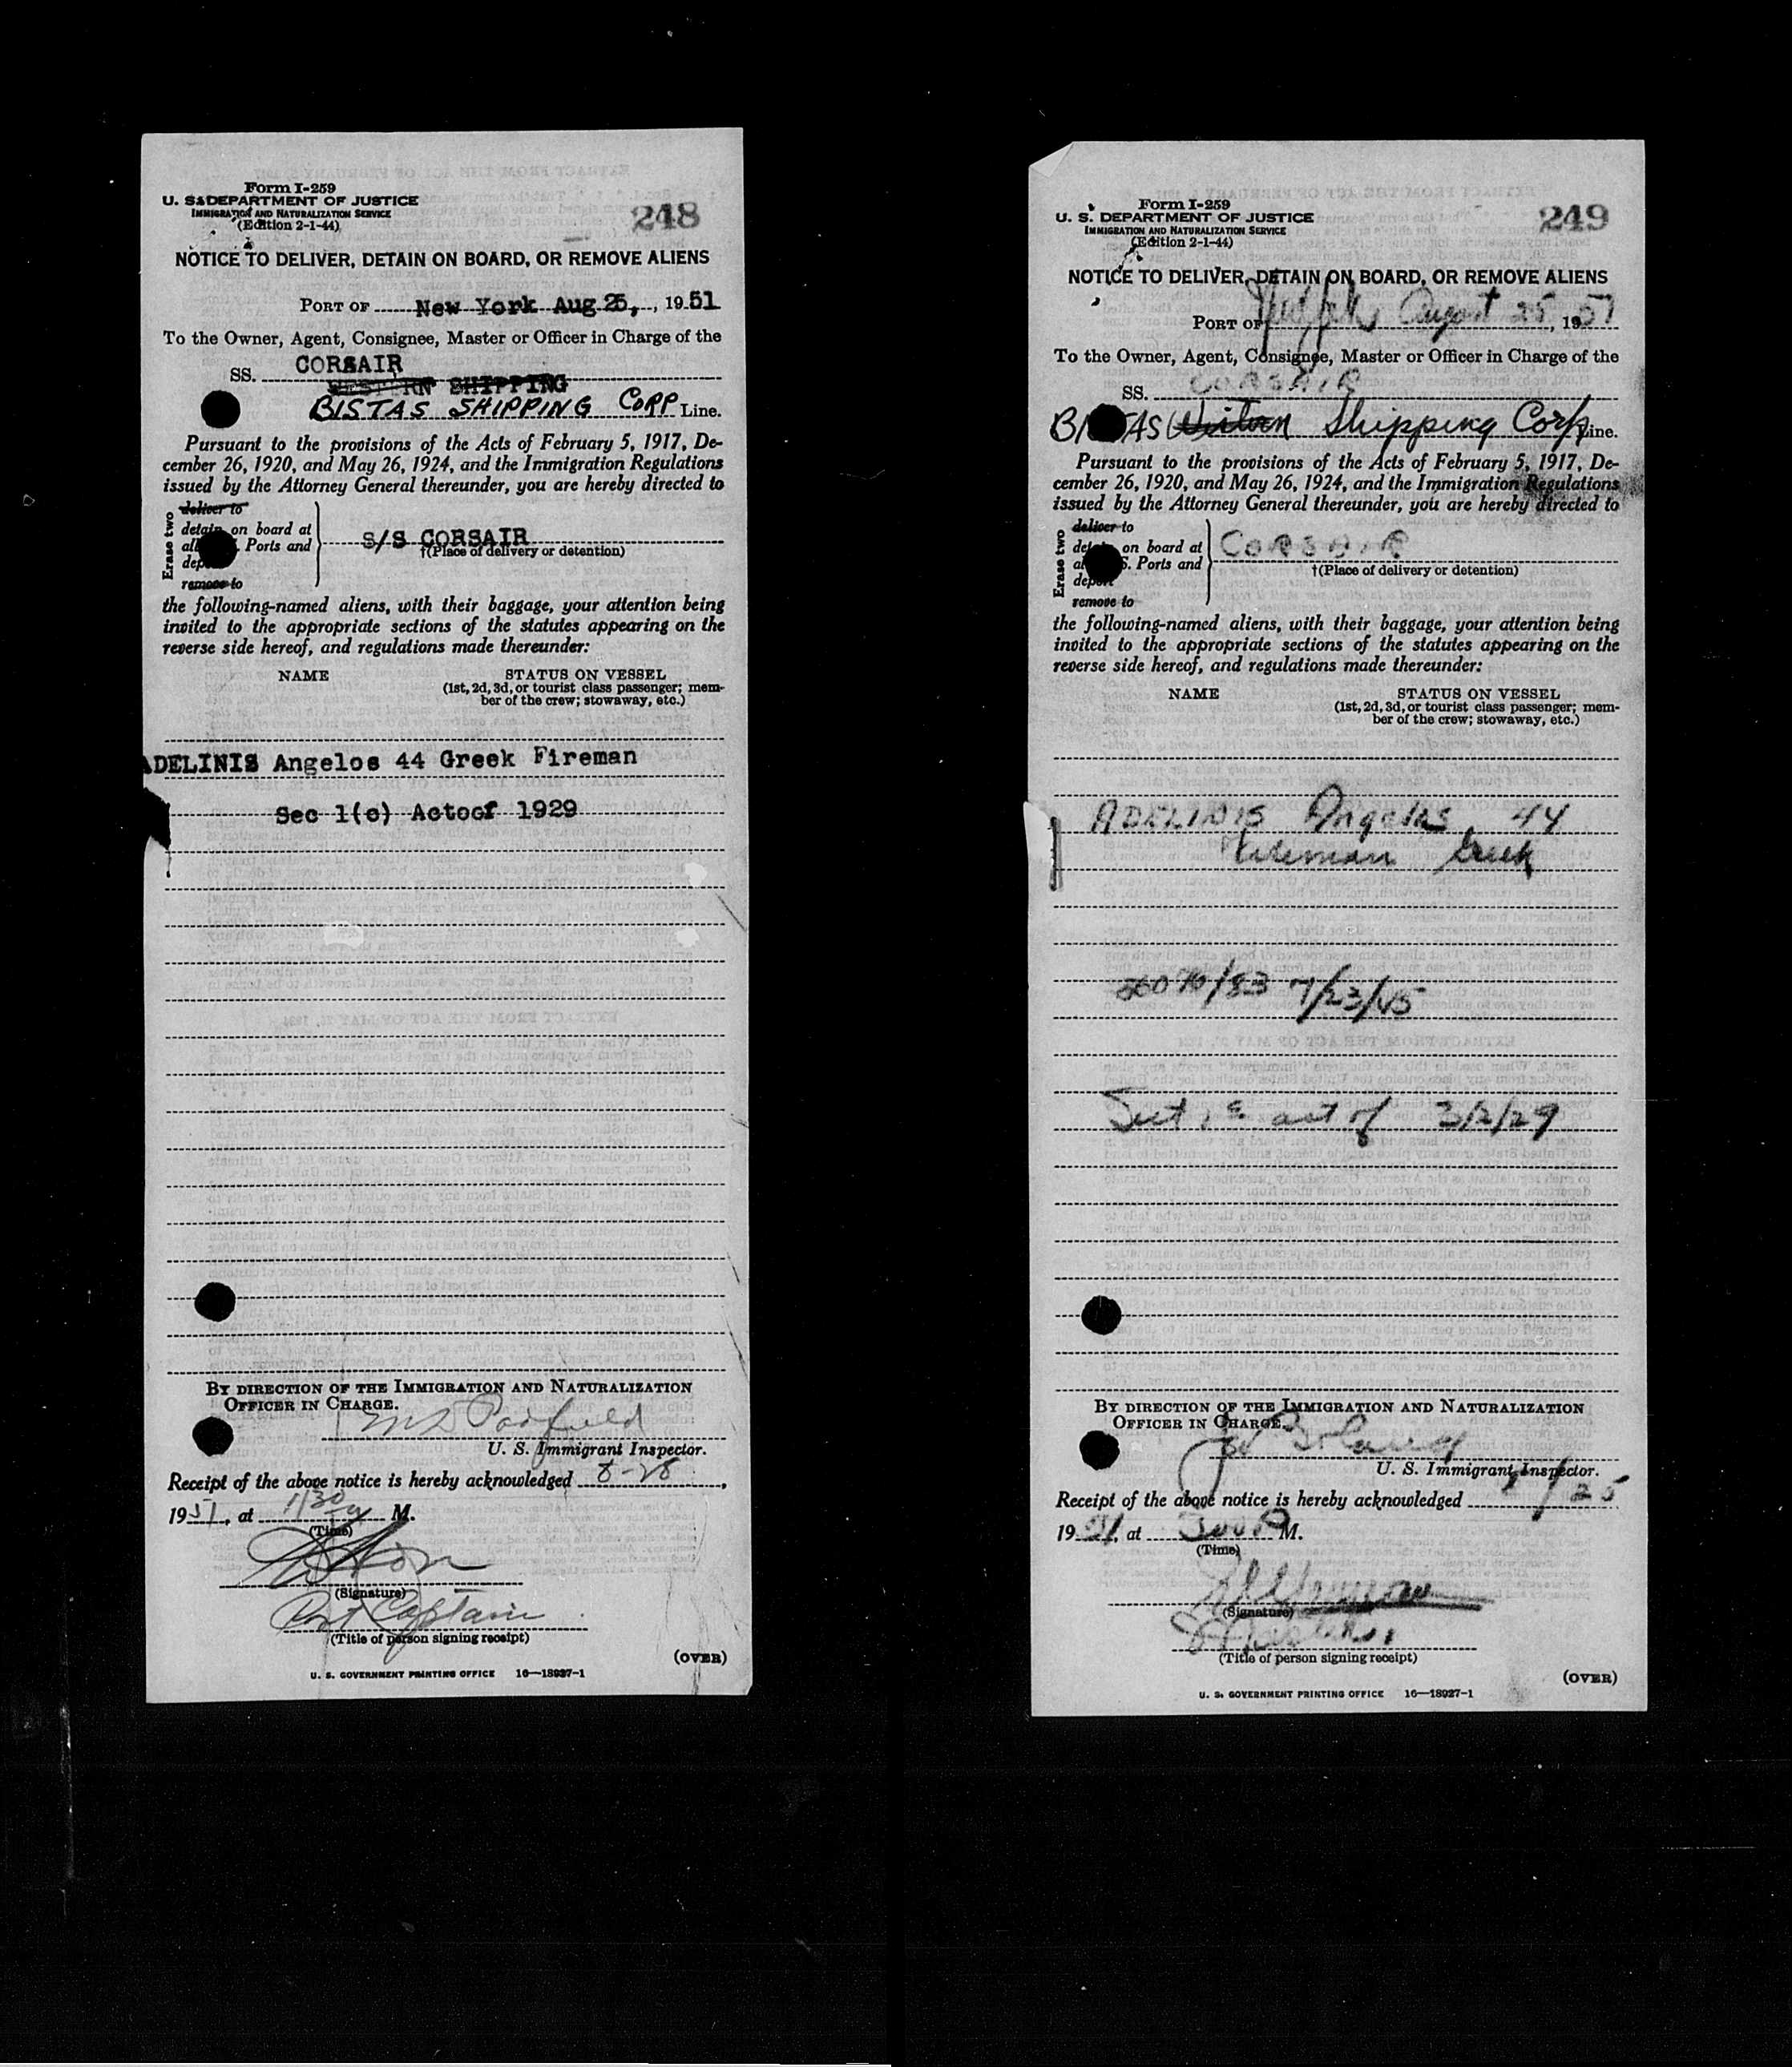 Form I-259
U. S. DEPARTMENT OF JUSTICE
IMMIGRATION AND NATURALIZATION SERVICE
(Edition 2-1-44)
248
NOTICE TO DELIVER, DETAIN ON BOARD, OR REMOVE ALIENS
PORT OF New York Aug 25, , 1951
To the Owner, Agent, Consignee, Master or Officer in Charge of the
SS. CORSAIR
WESTERN SHIPPING
BISTAS SHIPPING CORP Line.
Pursuant to the provisions of the Acts of February 5, 1917, De-
cember 26, 1920, and May 26, 1924, and the Immigration Regulations
issued by the Attorney General thereunder, you are hereby directed to
Erase two
deliver to
detain on board at
all . Ports and
remove to
S/S CORSAIR
†(Place of delivery or detention)
the following-named aliens, with their baggage, your attention being
invited to the appropriate sections of the statutes appearing on the
reverse side hereof, and regulations made thereunder:
NAME STATUS ON VESSEL
(1st, 2d, 3d, or tourist class passenger; mem-
ber of the crew; stowaway, etc.)
ADELINIS Angelos 44 Greek Fireman
Sec 1(c) Actoof 1929
BY DIRECTION OF THE IMMIGRATION AND NATURALIZATION
OFFICER IN CHARGE.
U. S. Immigrant Inspector.
Receipt of the above notice is hereby acknowledged 8-28 ,
1951, at 1/30 M.
(Time)
(Signature)
Port Captain
(Title of person signing receipt)
(OVER)
U. S. GOVERNMENT PRINTING OFFICE 16—18927-1
Form I-259
U. S. DEPARTMENT OF JUSTICE
IMMIGRATION AND NATURALIZATION SERVICE
(Edition 2-1-44)
249
NOTICE TO DELIVER, DETAIN ON BOARD, OR REMOVE ALIENS
PORT OF New York August 25, 1951
To the Owner, Agent, Consignee, Master or Officer in Charge of the
SS. CORSAIR
BISTAS Western Shipping Corp Line.
Pursuant to the provisions of the Acts of February 5, 1917, De-
cember 26, 1920, and May 26, 1924, and the Immigration Regulations
issued by the Attorney General thereunder, you are hereby directed to
Erase two
deliver to
detain on board at
S. Ports and
deport
remove to
CORSAIR
†(Place of delivery or detention)
the following-named aliens, with their baggage, your attention being
invited to the appropriate sections of the statutes appearing on the
reverse side hereof, and regulations made thereunder:
NAME STATUS ON VESSEL
(1st, 2d, 3d, or tourist class passenger; mem-
ber of the crew; stowaway, etc.)
ADELINIS Angelos 44
Fireman Greek
7/23/45
Sect 1 c act of 3/2/29
BY DIRECTION OF THE IMMIGRATION AND NATURALIZATION
OFFICER IN CHARGE.
U. S. Immigrant Inspector.
Receipt of the above notice is hereby acknowledged 8/25
1951, at 3:00 P M.
(Time)
(Signature)
(Title of person signing receipt)
(OVER)
U. S. GOVERNMENT PRINTING OFFICE 16—18927-1